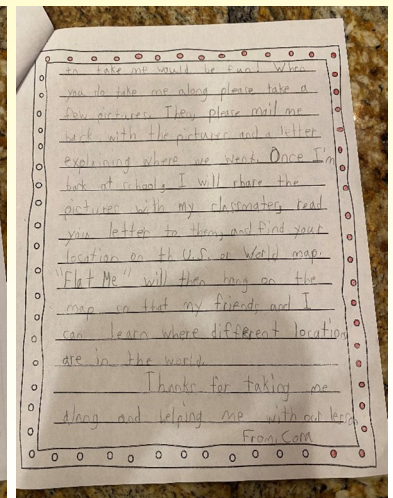 to take me would be fun! When
you do take me along please take a
few pictures. Then, please mail me
back with the pictures and a letter
explaining where we went. Once I'm
back at school, I will share the
pictures with my classmates, read
your letter to them, and find your
location on th U.S. or World map.
"Flat Me" will then hang on the
map so that my friends and I
can learn where different location
are in the world.
Thanks for taking me
along and helping me with our lesson
From, Cora